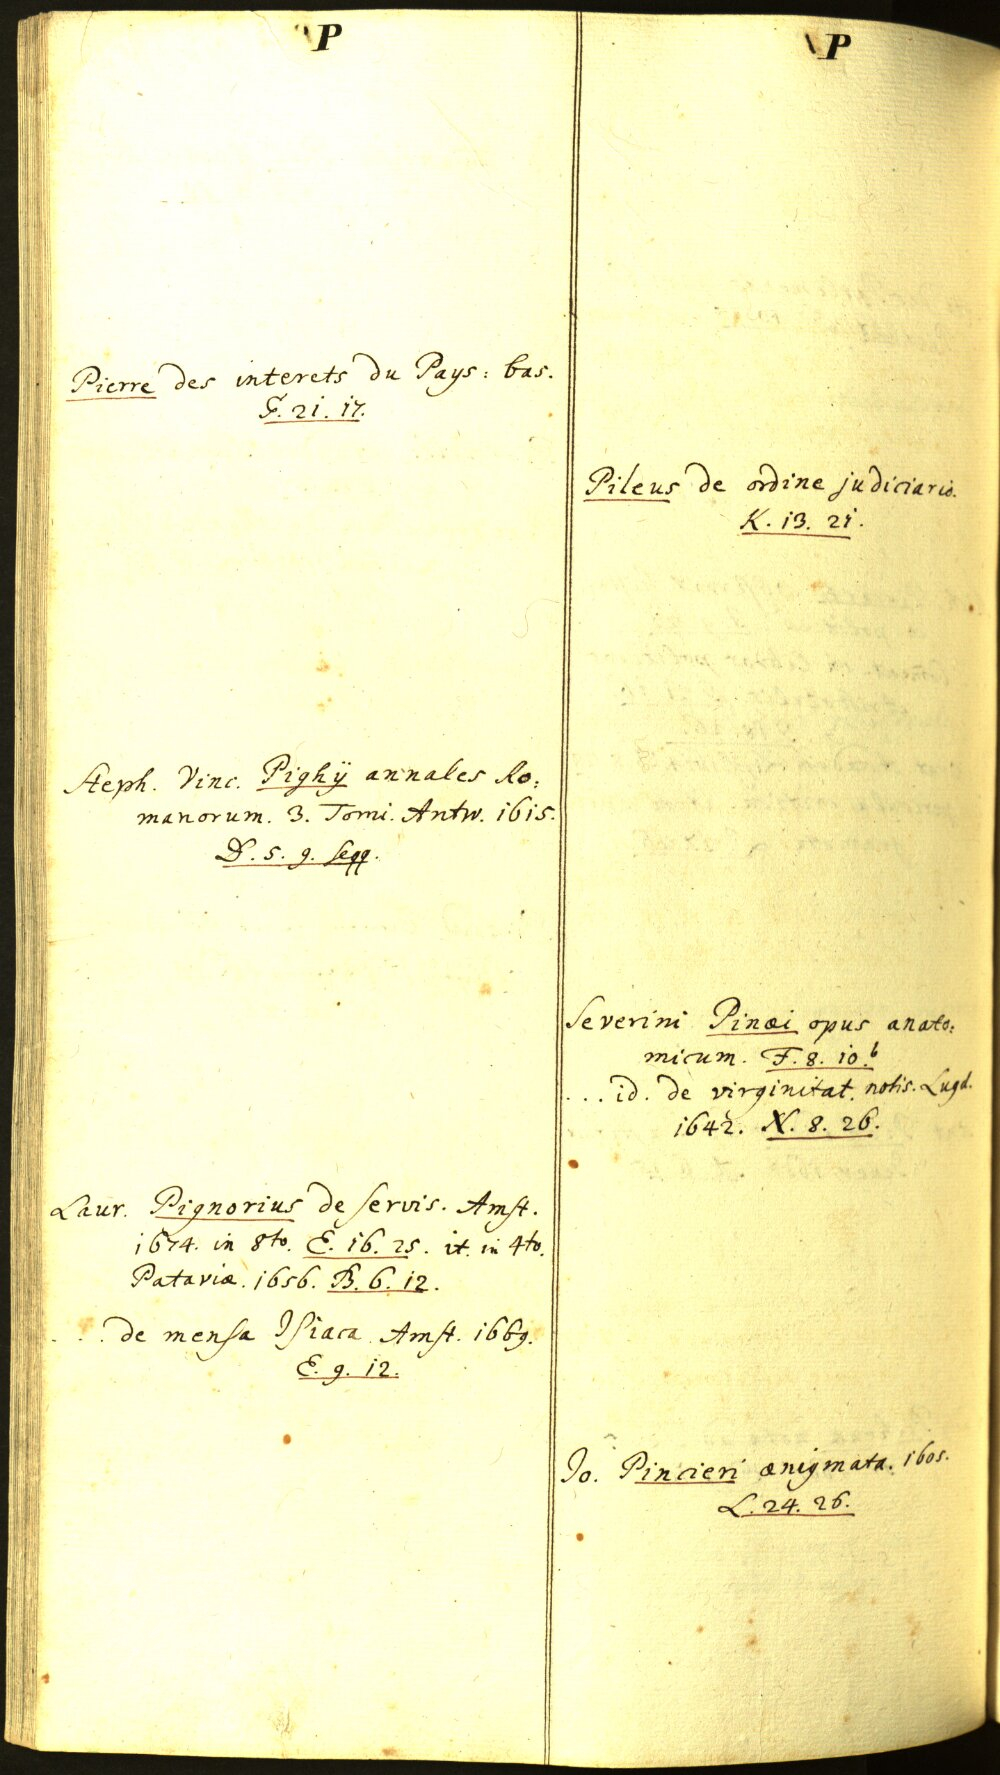 P
Pierre des interets du Pays: bas.
F. 21. 17.
Steph. Vinc. Pighij annales Ro:
manorum. 3. Tomi. Antw. 1615.
D. 5. 9. seqq.
Laur. Pignorius de servis. Amst.
1674. in 8to. E. 16. 25. it. in 4to.
Pataviæ. 1656. B. 6. 12.
... de mensa Isiaca Amst. 1669.
E. 9. 12.
P
Pileus de ordine judiciario.
K. 13. 21.
Severini Pinæi opus anato:
micum. F. 8. 10.b
... id. de virginitat. notis. Lugd.
1642. N. 8. 26.
Jo. Pincieri ænigmata. 1605.
L. 24. 26.